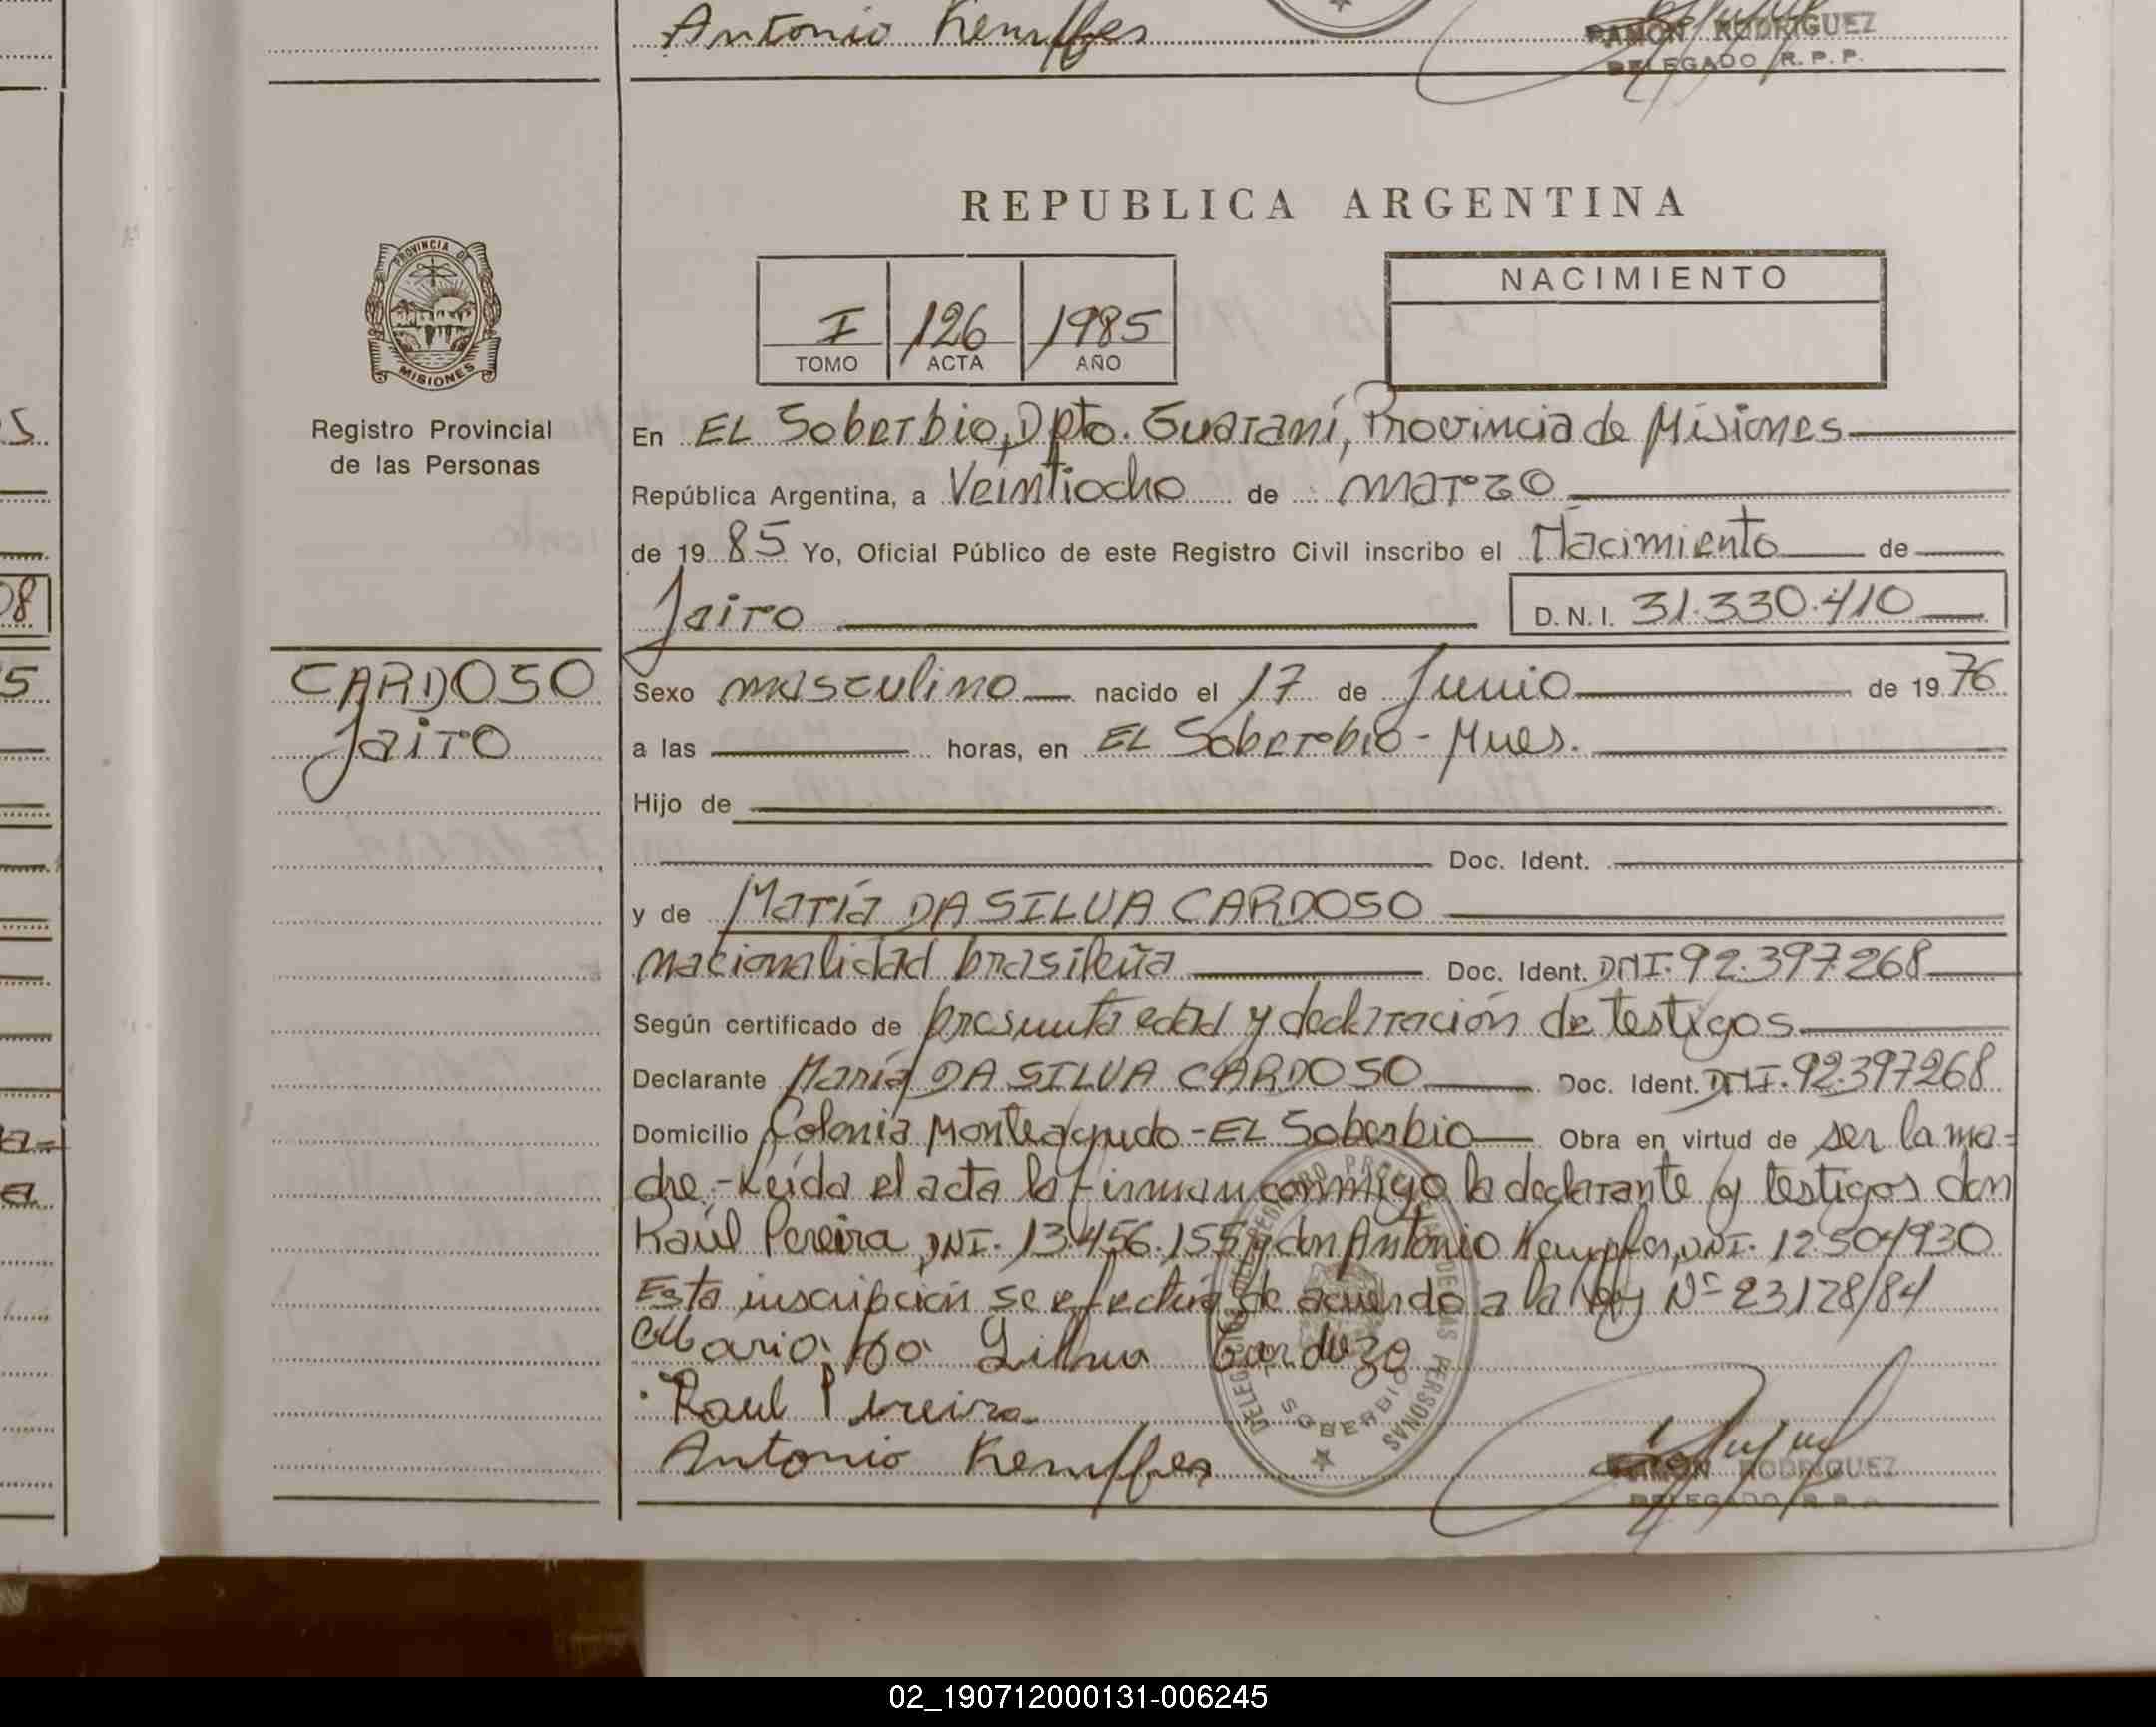 Antonio Kemffer
RAMON RODRIGUEZ
DELEGADO R. P. P.
REPUBLICA ARGENTINA
PROVINCIA DE
MISIONES
Registro Provincial
de las Personas
I 126 1985
TOMO ACTA AÑO
NACIMIENTO
En EL Soberbio, Dpto. Guaraní, Provincia de Misiones
República Argentina, a Veintiocho de marzo
de 19 85 Yo, Oficial Público de este Registro Civil inscribo el Nacimiento de
Jairo D.N.I. 31.330.410
CARDOSO
Jairo
Sexo masculino nacido el 17 de Junio de 19 76
a las horas, en EL Soberobio - Mnes.
Hijo de
Doc. Ident.
y de María DA SILVA CARDOSO
nacionalidad brasileña Doc. Ident. DNI. 92.397.268
Según certificado de presunta edad y declaración de testigos
Declarante María DA SILVA CARDOSO Doc. Ident. DNI. 92.397268
Domicilio Colonia Monteagudo - EL Soberbio Obra en virtud de ser la ma=
dre.- Leída el acta la firman conmigo la declarante y testigos don
Raúl Pereira, DNI. 13.456.155 y don Antonio Kempfer, DNI. 12.504930
Esta inscripción se efectúa de acuerdo a la ley Nº 23128/84
Maria da Silva Cardozo
Raul Pereira
Antonio Kemffer
DELEGACION DEL REGISTRO PROVINCIAL DE LAS PERSONAS
SOBERBIO
RAMON RODRIGUEZ
DELEGADO R. P. P.
5
08
5
a=
a
02_190712000131-006245